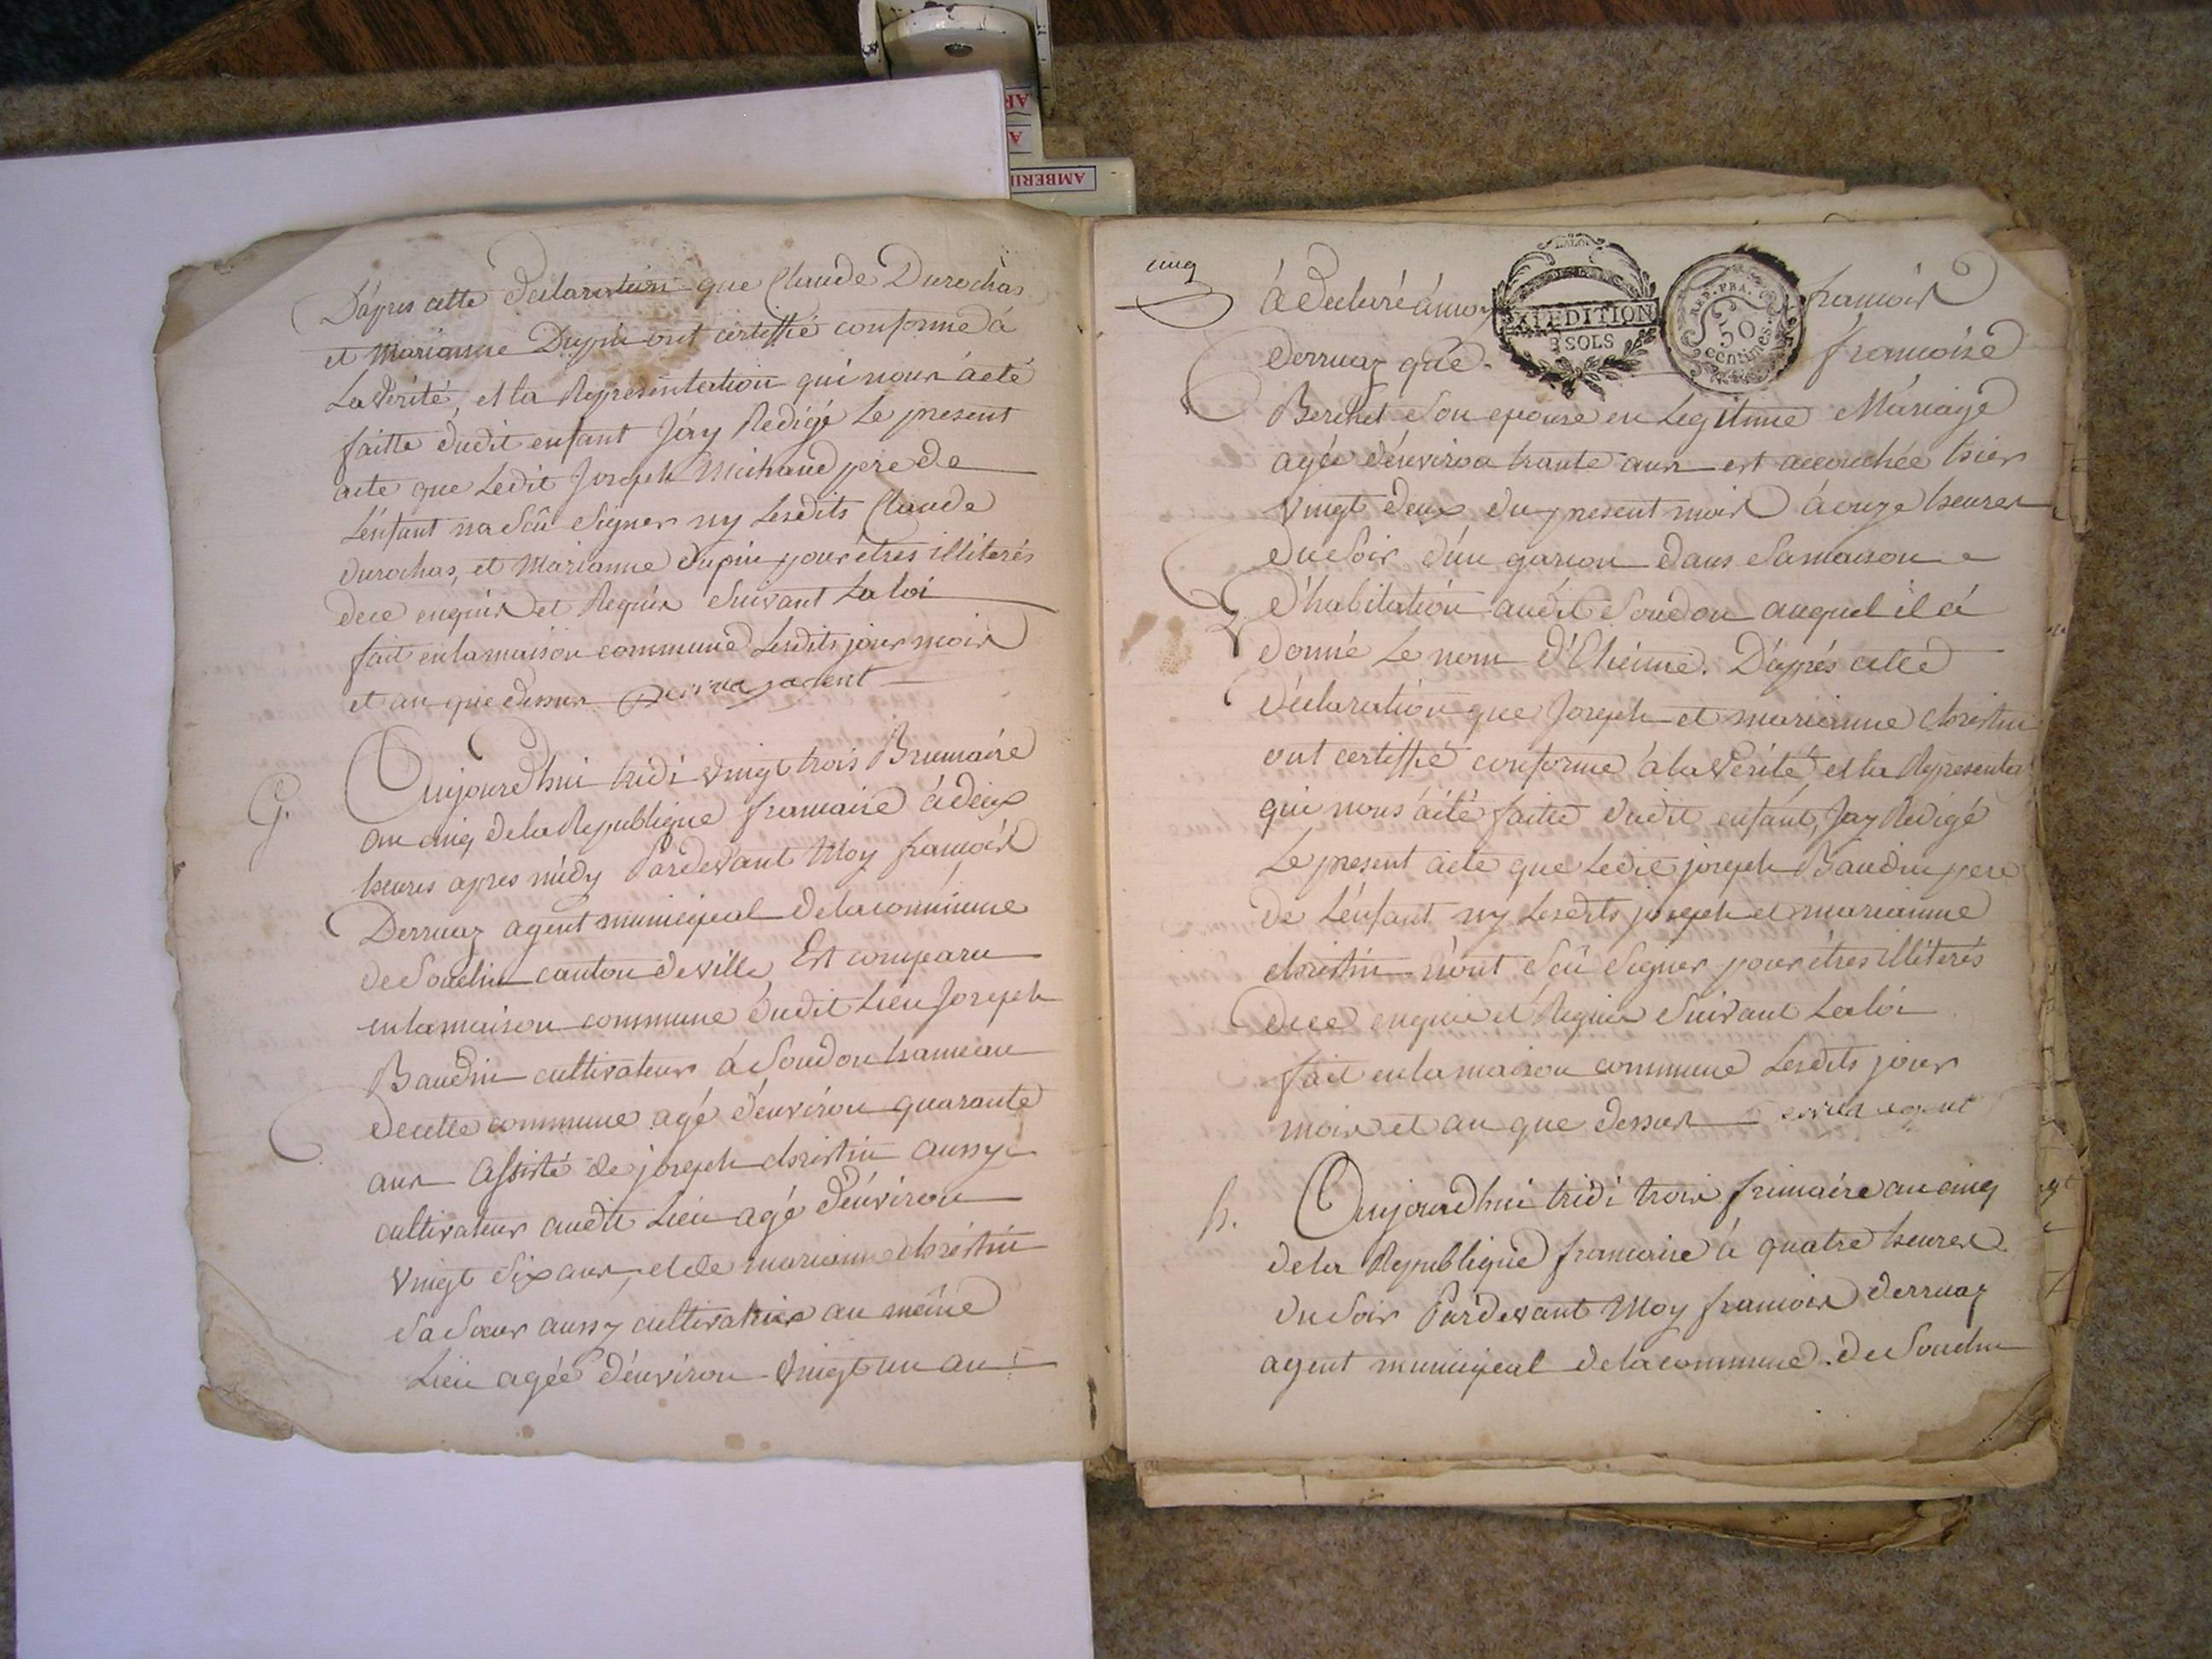 D'apres cette Declaration que Claude Durochas
et Marianne Dupin ont certiffié conforme à
La Vérité, et la Representation qui nous àeté
faitte dudit enfant J'ay Redigé Le present
acte que Ledit Joseph Michaud pere de
L'enfant na Sçû Signer ny Lesdits Claude
durochas, et Marianne dupin pour êtres illiterés
dece enquis et Requis Suivant La loi
fait enlamaison commune Lesdits jour mois
et an que dessus Derruaz agent
G. Aujourdhui tridi vingt trois Brumaire
an cinq dela Republique francaise à deux
heures apres midy Pardevant Moy françois
Derruaz agent municipal delacommune
de Soucln canton deville Est comparu
enlamaison commune dudit Lieu Joseph
Baudin cultivateur à Soudon hameau
decette commune agé d'environ quarante
ans Assisté de joseph christin aussy
cultivateur audit Lieu agé d'environ
vingt Six ans, et de marianne christin
Sa Sœur aussy cultivatrice au même
Lieu agée d'environ vingt un ans
cinq
à declaré à moy francois
Derruaz que francoise
Berthet Son epouse en Legitime Mariage
agée d'environ trante ans est accouchée hier
vingt deux du present mois à onze heures
du Soir d'un garcon dans Samaison
d'habitation audit Soudon auquel il à
donné Le nom d'Etienne. D'après cette
déclaration que Joseph et marianne christin
ont certiffié conforme à la Vérité, et la Representa
qui nous àété faitte dudit enfant, J'ay Redigé
Le present acte que Ledit joseph Baudin pere
de L'enfant ny Lesdits joseph et marianne
christin n'ont Sçû Signer pour êtres illitérés
dece enquis et Requis Suivant La loi
fait enlamaison commune Lesdits jour
mois et an que dessus Derruaz agent
h. Aujourdhui tridi trois frimaire an cinq
dela Republique francaise à quatre heures
du Soir Pardevant Moy francois Derruaz
agent municipal delacommune de Souclin
LALOI
EXPEDITION
3 SOLS
50
centimes
AMBERI